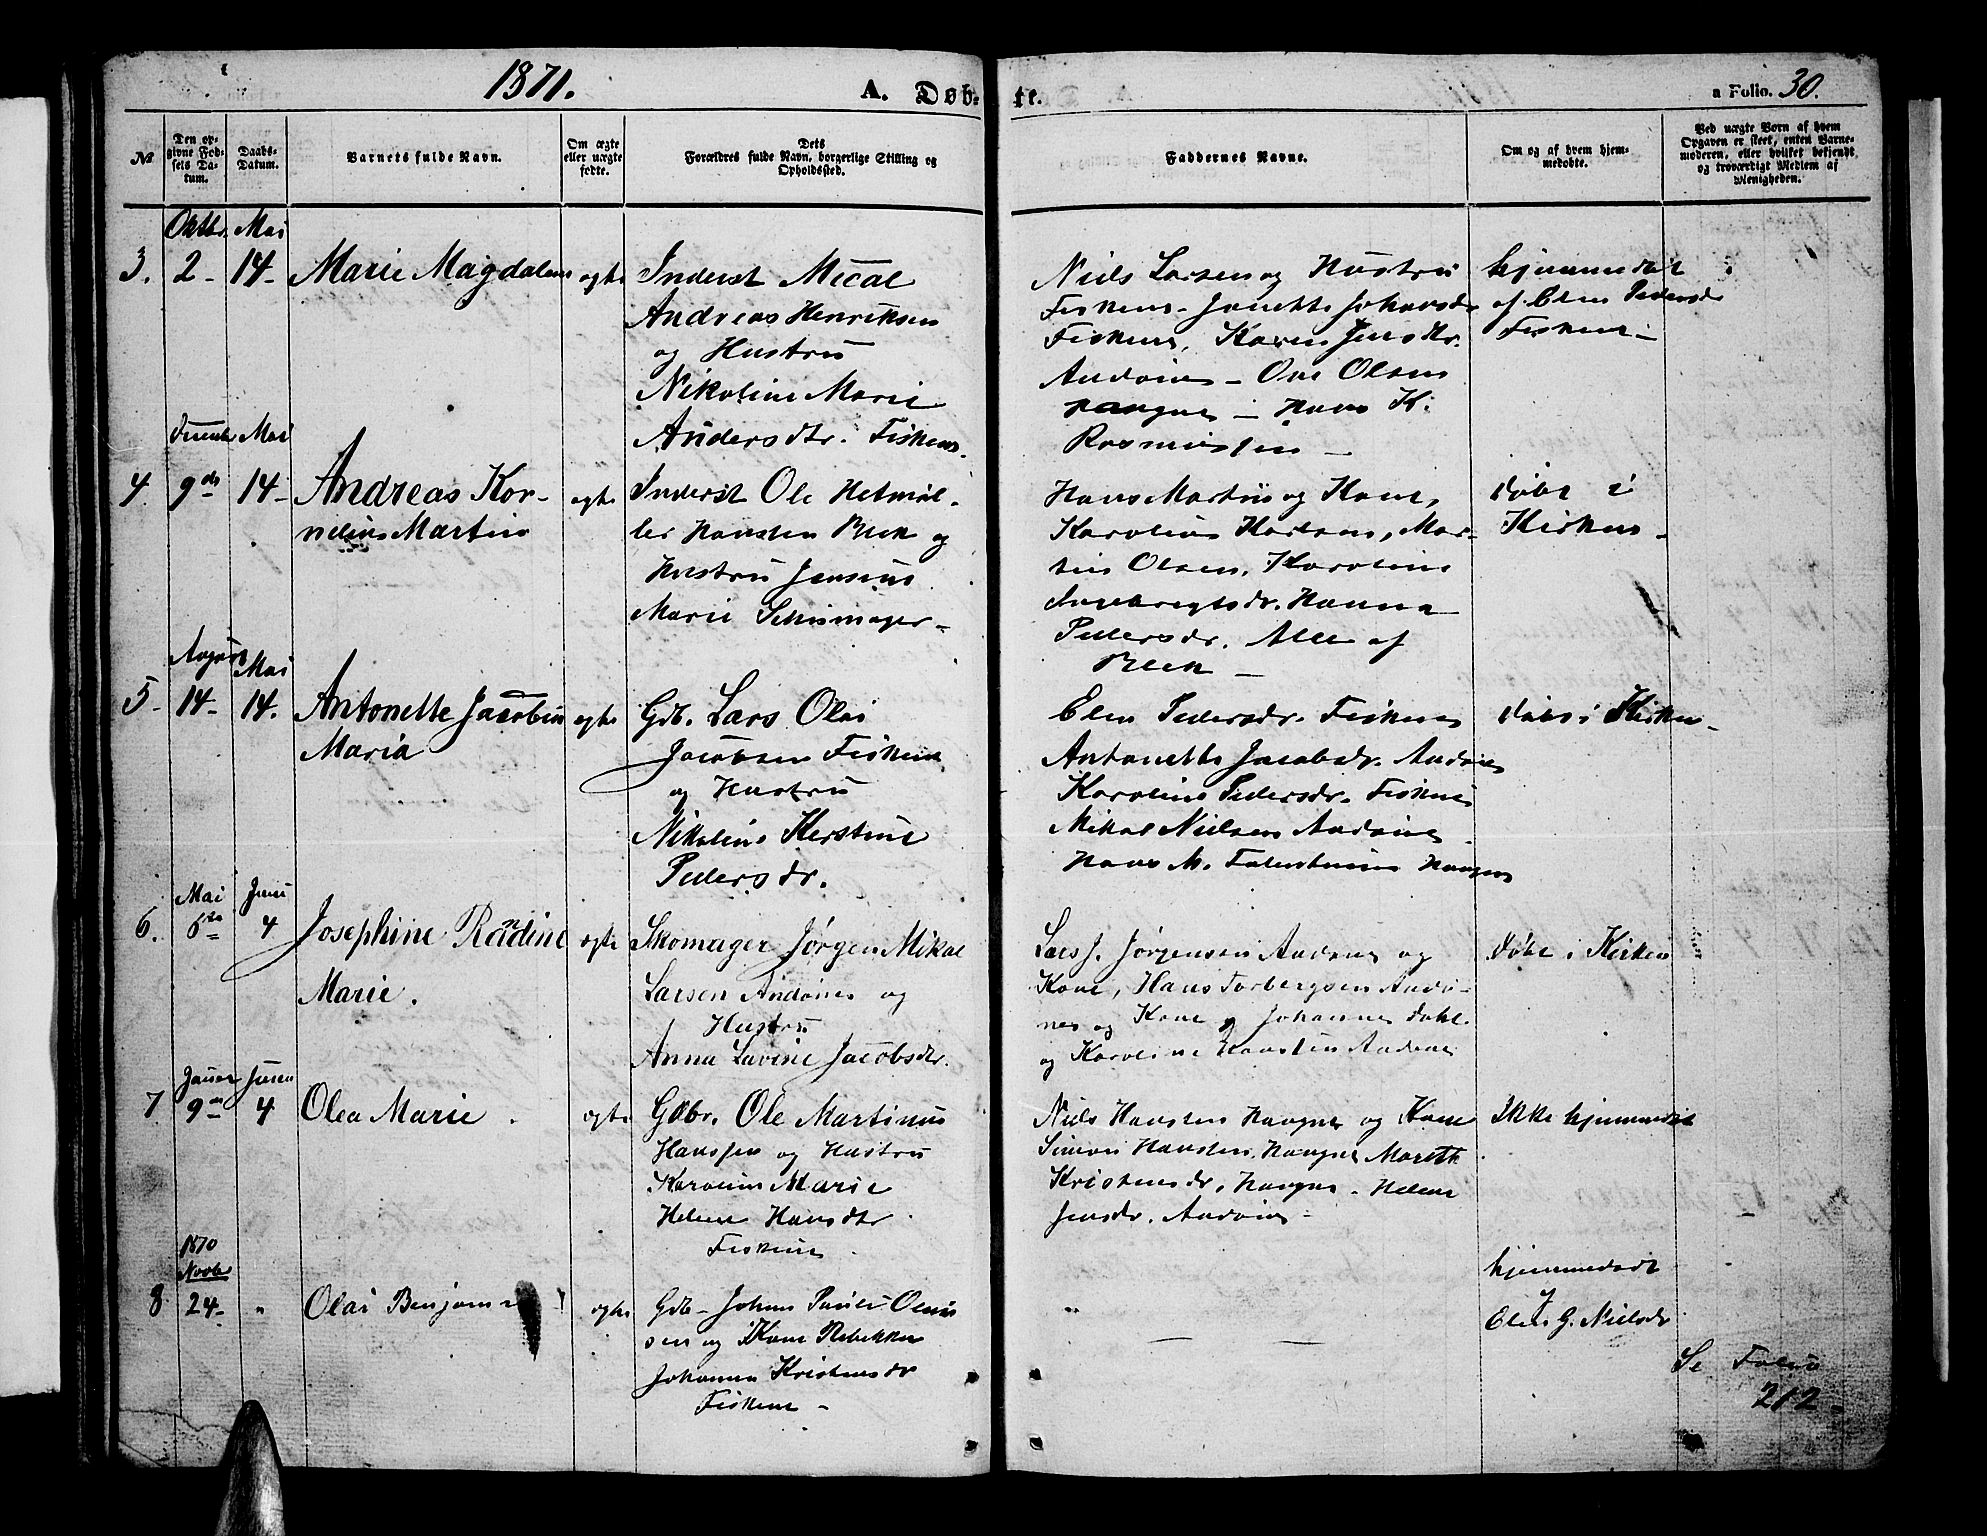 1871.
A. Døb-
te.
a Folio. 30.
№
Den op-
givne Fød-
sels Da-
tum.
Daabs-
Datum.
Barnets fulde Navn.
Om ægte
eller uægte
fødte.
Dets
Forældres fulde Navn, borgerlige Stilling og
Opholdssted.
Faddernes Navne.
Om og af hvem hjem-
medøbte.
Ved uægte Børn af hvem
Opgaven er skeet, enten Barne-
moderen, eller hvilket bekjendt
og troværdigt Medlem af
Menigheden.
Oktbr. Mai
3. 2- 14- Marie Magdalene ægte
Inderst Mecal
Andreas Henriksen
og Hustru
Nikoline Marie
Andersdtr. Fiskenes.
Niels Larsen og Hustru
Fiskenes - Janette Johansdr
Fiskenes, Karen Jensdtr.
Andøines - Ove Olsen
Haugnes - Hans K.
Rasmussen -
hjemmedøbt
af Elen Pedersdr
Fiskenes -
Mai
4 9de 14- Andreas Kor-
nelius Martin
ægte
Inderst Ole Hetmøl-
ler Hansten Bleik og
Hustru Jensine
Marie
Hans Martin og Kone,
Karoline Karlsen, Mar-
tin Olsen, Karoline
Ingebregtsdr. Hanna
Pedersdr. Alle af
Bleik -
Døbt i
Kirken.
August Mai
5- 14- 14. Antonette Jacobine
Maria
ægte
Gdb. Lars Olai
Jacobsen Fiskenes
og Hustru
Nikoline Kerstine
Pedersdr.
Elen Pedersdr. Fiskenes
Antonette Jacobsdr. Andøines
Karoline Pedersdr. Fiskenes
Mikal Nielsen Andøines
Hans M. Haugnes
døbt i Kirken -
Mai Juni
6. 6te 4 Josephine Randine
Marie.
ægte
Skomager Jørgen Mikal
Larsen Andønes og
Hustru
Anna Lavine Jacobsdr.
Lars J. Jørgensen Andønes og
Kone, Hans Torbergsen Andø-
nes og Kone, Johannes Dahl.
og Karoline Hansten Andønes
døbt i Kirken
Januar Juni
7 9de 4 Olea Marie . ægte
Gdbr. Ole Martinus
Hanssen og Hustru
Karoline Marie
Helene Hansdtr
Fiskenes
Niels Hansten Haugnes og Kone
Simon Hansten, Haugnes Mareth
Kristensdr, Haugnes. Helene
Jensdr. Andøines -
Ikke hjemmedøbt
1870
Novbr
8 24- " Olai Benjamin ægte
Gdb - Johan Paul Olaus
sen og Kone Rebekka
Johanna Kristensdr
Fiskenes -
"
hjemmedøbt
af
Elen G. Nielsdr
Se Folio
212-